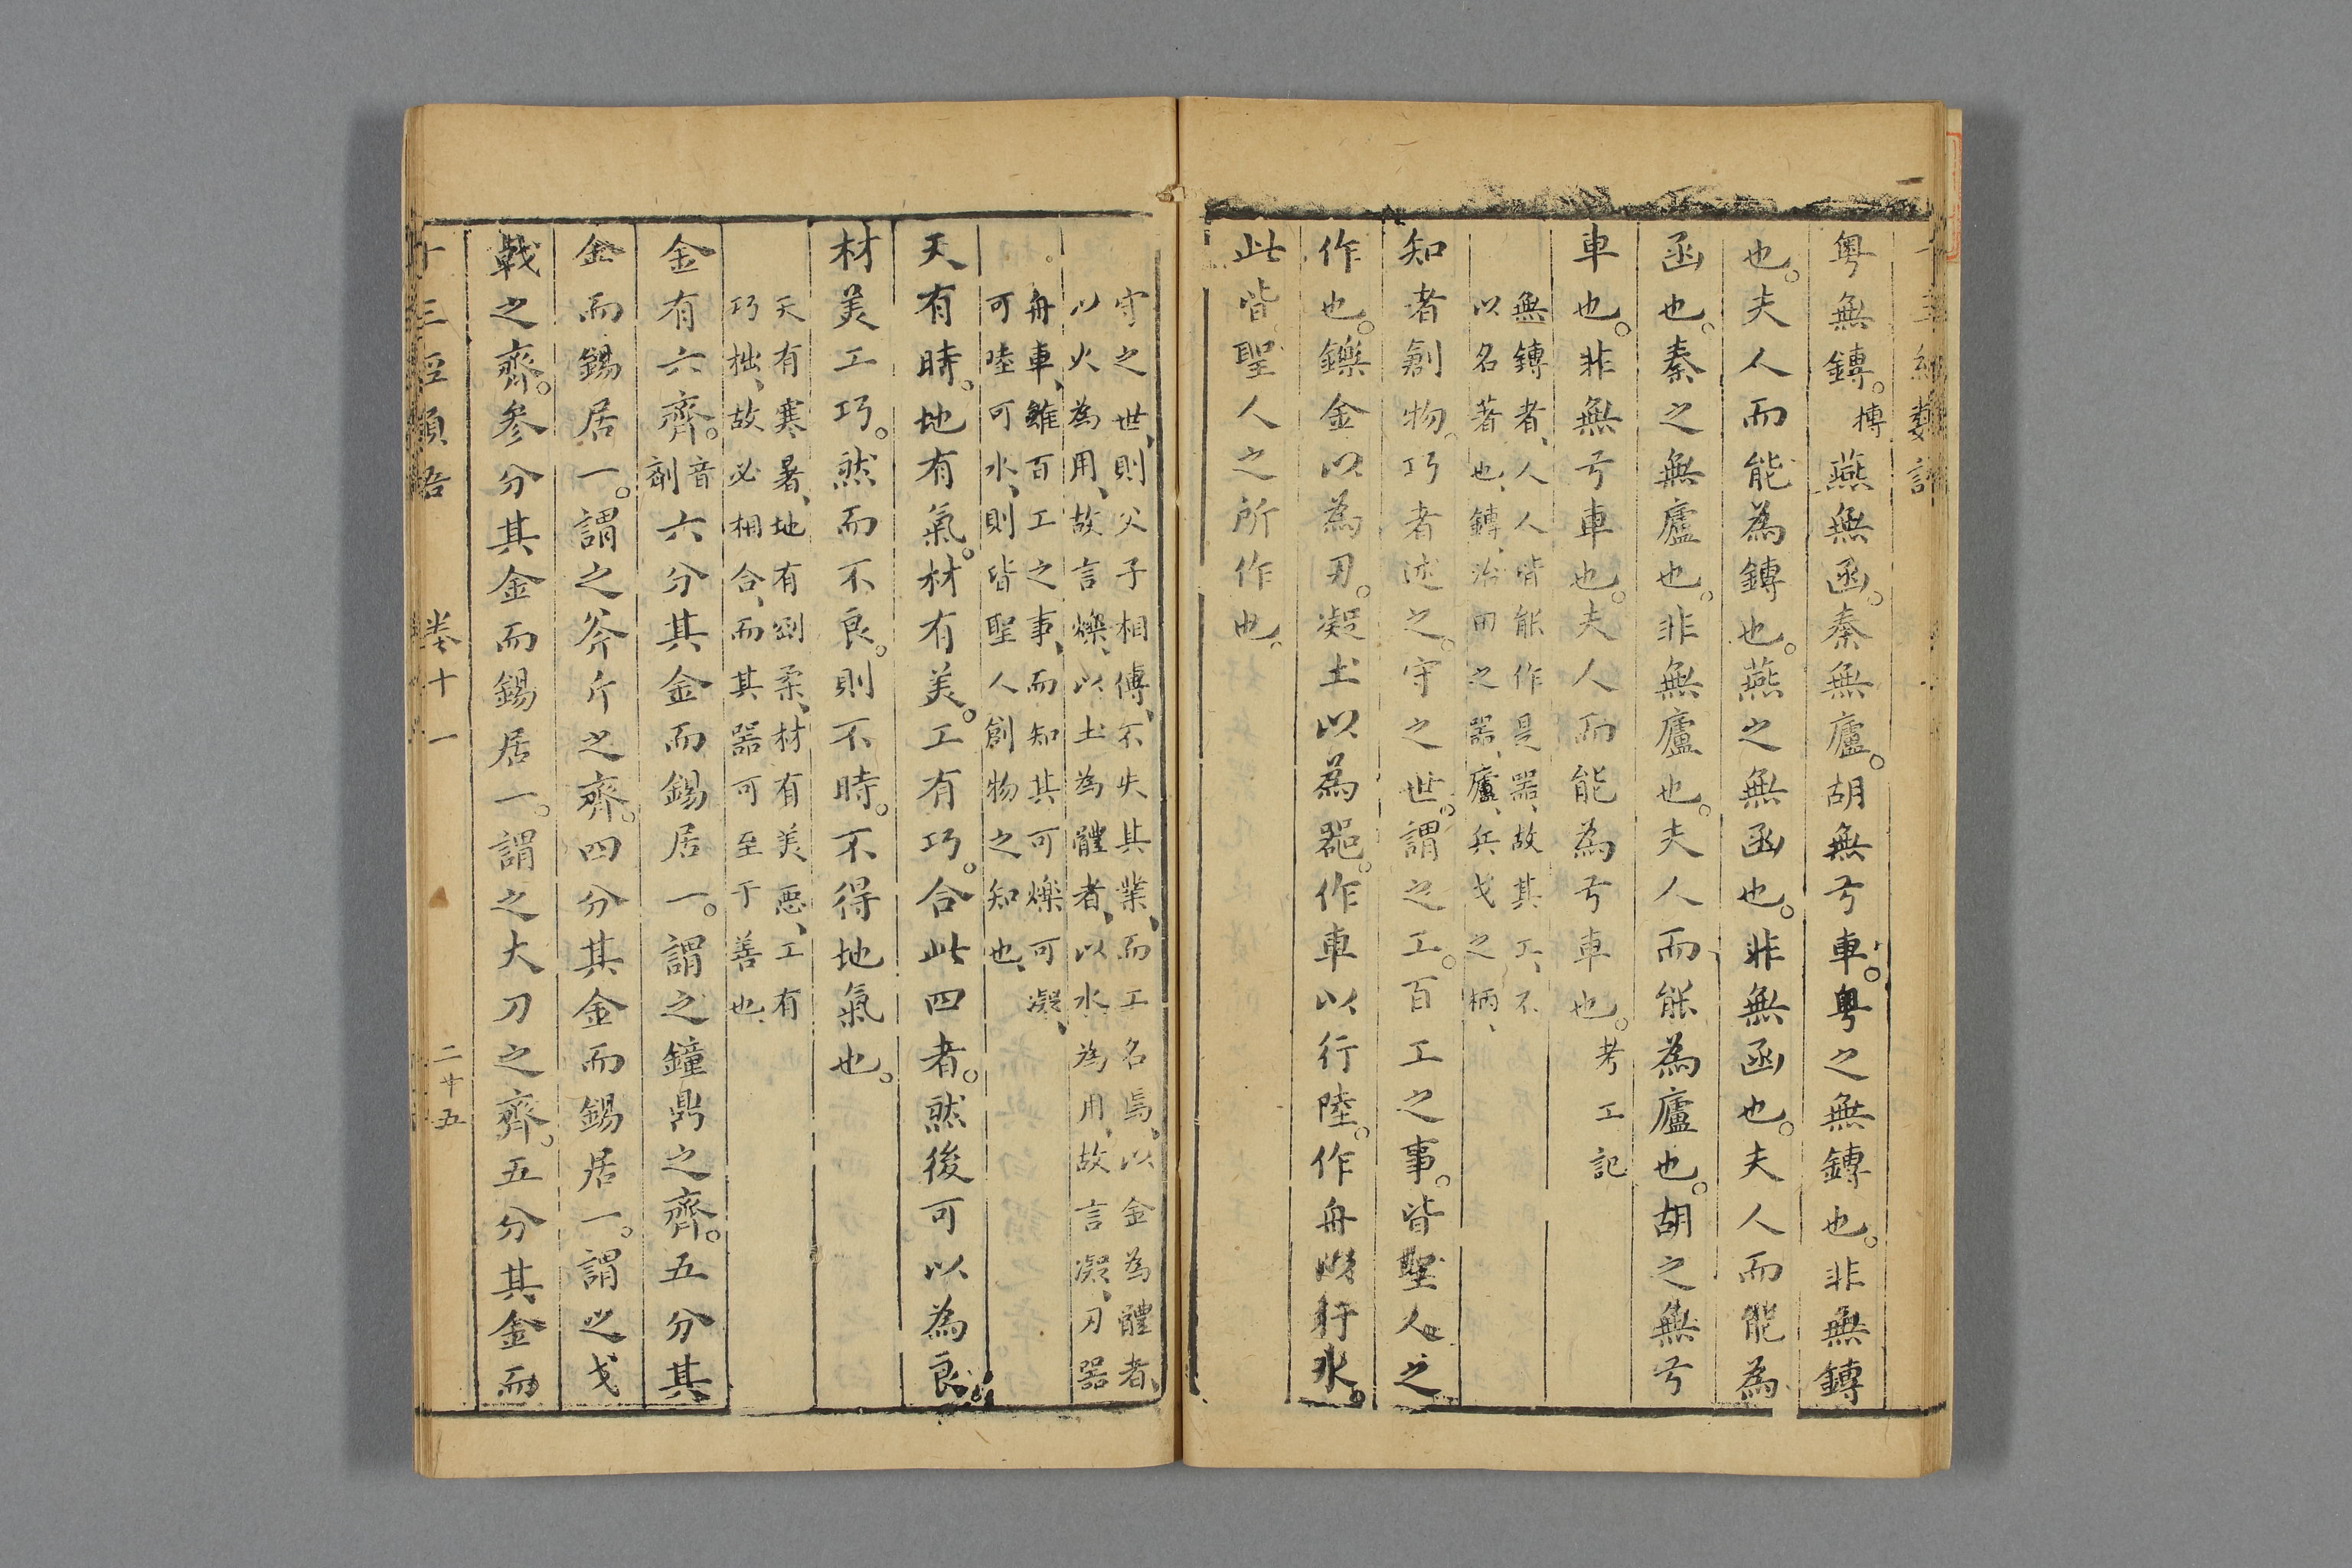 粤無鎛。搏燕無函。秦無廬。胡無弓車。粤之無鎛也。非無鎛
也。夫人而能為鎛也。燕之無函也。非無函也。夫人而能為
函也。秦之無廬也。非無廬也。夫人而能為廬也。胡之無弓
車也。非無弓車也。夫人而能為弓車也。考工記
無鎛者、人人皆能作是器、故其工、不
以名著也、鎛、治田之器、廬、兵戈之柄、
知者創物。巧者述之。守之世。謂之工。百工之事。皆聖人之
作也。鑠金以為刃。凝土以為器。作車以行陸。作舟以行水。
此皆聖人之所作也。
守之世、則父子相傅、不失其業、而工名焉、以金為體者、
以火為用、故言爍、以土為體者、以水為用、故言凝、刃器
舟車、雖百工之事、而知其可爍可凝、
可陸可水、則皆聖人創物之知也、
天有時。地有氣。材有美。工有巧。合此四者。然後可以為良。
材美工巧。然而不良。則不時。不得地氣也。
天有寒暑、地有剛柔、材有美惡、工有
巧拙、故必相合、而其器可至于善也、
金有六齊。音劑六分其金而錫居一。謂之鐘鼎之齊。五分其
金而錫居一。謂之斧斤之齊。四分其金而錫居一。謂之戈
戟之齊。參分其金而錫居一。謂之大刀之齊。五分其金而
十三經類語 卷十一 二十五